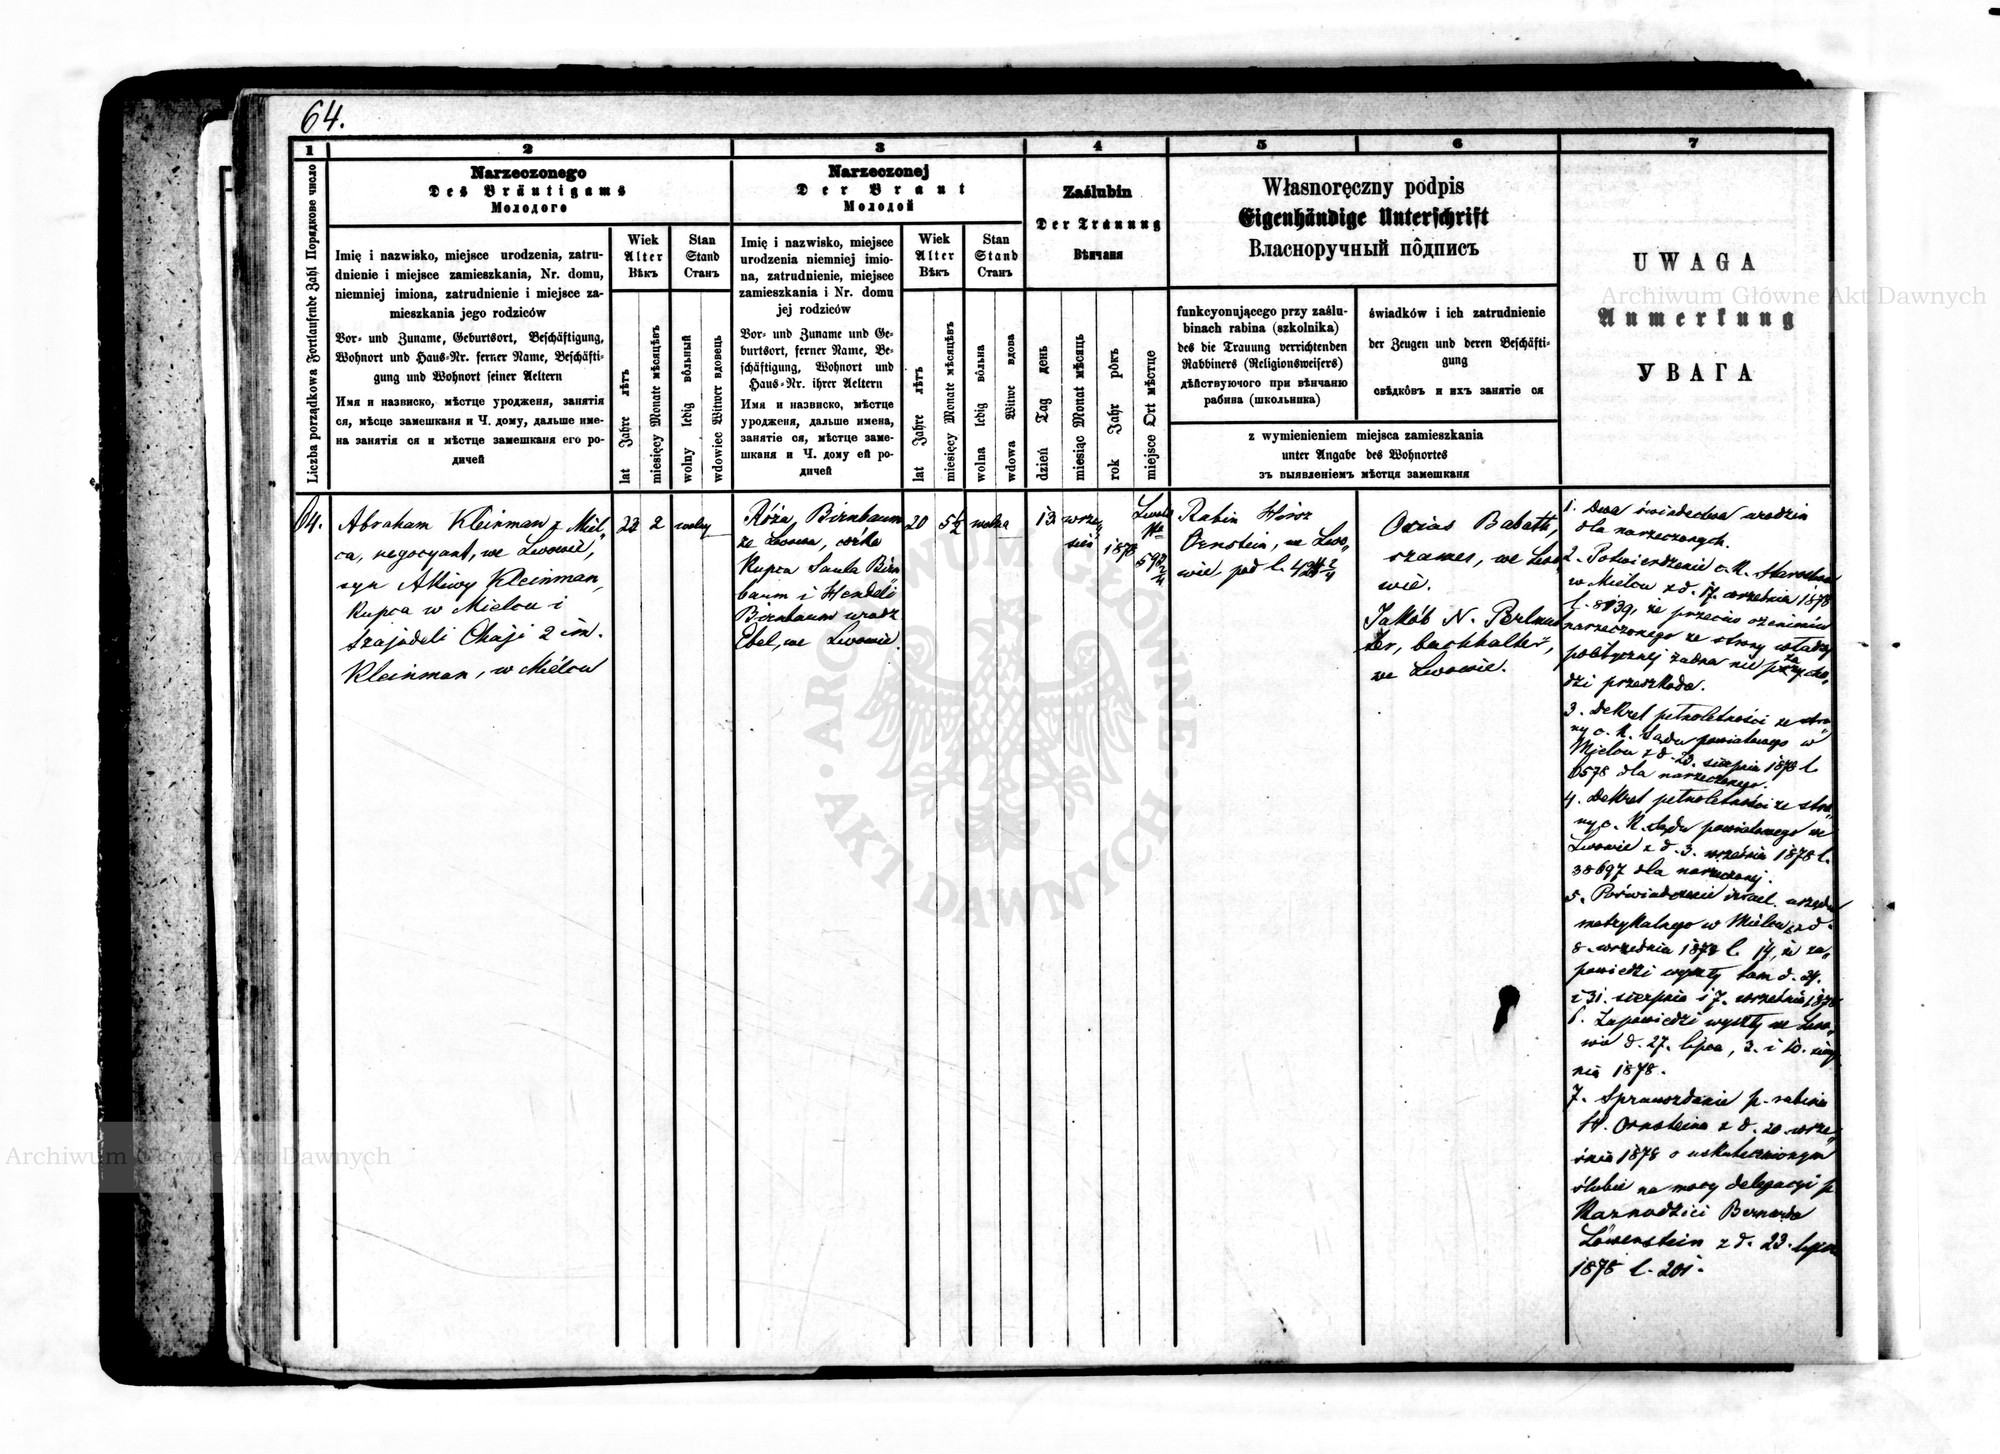 64.
1
2
3
4
5
6
7
Liczba porządkowa Fortlaufende Zahl Порядкове число
Narzeczonego
Des Bräutigams
Молодого
Imię i nazwisko, miejsce urodzenia, zatru-
dnienie i miejsce zamieszkania, Nr. domu,
niemniej imiona, zatrudnienie i miejsce za-
mieszkania jego rodziców
Vor- und Zuname, Geburtsort, Beschäftigung,
Wohnort und Haus-Nr. ferner Name, Beschäfti-
gung und Wohnort seiner Aeltern
Имя и назвиско, мѣстце уродженя, занятія
ся, мѣсце замешканя и Ч. дому, дальше име-
на занятія ся и мѣстце замешканя его ро-
дичей
Wiek
Alter
Вѣкъ
lat Jahre лѣтъ
miesięcy Monate мѣсяцѣвъ
Stan
Stand
Станъ
wolny ledig вôльный
wdowiec Witwer вдовець
Narzeczonej
Der Braut
Молодой
Imię i nazwisko, miejsce
urodzenia niemniej imio-
na, zatrudnienie, miejsce
zamieszkania i Nr. domu
jej rodziców
Vor- und Zuname und Ge-
burtsort, ferner Name, Be-
schäftigung, Wohnort und
Haus-Nr. ihrer Aeltern
Имя и назвиско, мѣстце
уродженя, дальше имена,
занятіе ся, мѣстце заме-
шканя и Ч. дому ей ро-
дичей
Wiek
Alter
Вѣкъ
lat Jahre лѣтъ
miesięcy Monate мѣсяцѣвъ
Stan
Stand
Станъ
wolna ledig вôльна
wdowa Witwe вдова
Zaślubin
Der Trauung
Вѣнчаня
dzień Tag день
miesiąc Monat мѣсяць
rok Jahr рôкъ
miejsce Ort мѣстце
Własnoręczny podpis
Eigenhändige Unterschrift
Власноручный пôдпись
funkcyonującego przy zaślu-
binach rabina (szkolnika)
des die Trauung verrichtenden
Rabbiners (Religionsweisers)
дѣйствуючого при вѣнчаню
рабина (школьника)
świadków i ich zatrudnienie
der Zeugen und deren Beschäfti-
gung
свѣдкôвъ и ихъ занятіе ся
z wymienieniem miejsca zamieszkania
unter Angabe des Wohnortes
зъ выявленіемъ мѣстця замешканя
UWAGA
Anmerkung
УВАГА
64.
Abraham Kleinman z Miel-
ca, negocyant, we Lwowie,
syn Akiwy Kleinman,
kupca w Mielcu i
Szajndeli Chaji 2 im.
Kleinman, w Mielcu
2
wolny
Róża Birnbaum
ze Lwowa, córka
kupca Saula Birn
baum i Hendeli
Birnbaum urodz
Ebel, we Lwowie.
20
5½
wolna
13
wrze-
sień
1878
Lwów
Rabin Hirsz
Ornstein, we Lwo-
wie pod l.
Ozias Babath,
szames, we Lwo-
wie.
Jakób N. Perlmut
ter, buchhalter,
we Lwowie.
1. Dwa świadectwa urodzin
dla narzeczonych.
2. Potwierdzenie c. k. Starostwa
w Mielcu z d. 17. września 1878
l. 8139, że przeciw ożenieniu
narzeczonego ze strony władzy
politycznej żadna nie zacho-
dzi przeszkoda.
3. Dekret pełnoletności ze stro-
ny c. k. sądu powiatowego w
Mielcu z d. 23. sierpnia 1878 l.
6578 dla narzeczonego.
4. Dekret pełnoletności ze stro-
ny c. k. sądu powiatowego we
Lwowie z d. 3. września 1878 l.
38697 dla narzeczonej.
5. Poświadczenie izrael. urzędu
metrykalnego w Mielcu z d.
8. września 1878 l. 14, że za-
powiedzi wyszły tam d. 24.
i 31. sierpnia i 7. września 1878
6. Zapowiedzi wyszły we Lwo-
wie d. 27. lipca, 3. i 10. sierp-
nia 1878.
7. Sprawozdanie p. rabina
H. Ornsteina z d. 20. wrze-
śnia 1878 o uskutecznionym
ślubie na mocy delegacyi p.
Kaznodziei Bernarda
Löwenstein z d. 23. lipca
1878 l. 201.
Archiwum Główne Akt Dawnych
Archiwum Główne Akt Dawnych
ARCHIWUM GŁÓWNE · AKT DAWNYCH ·